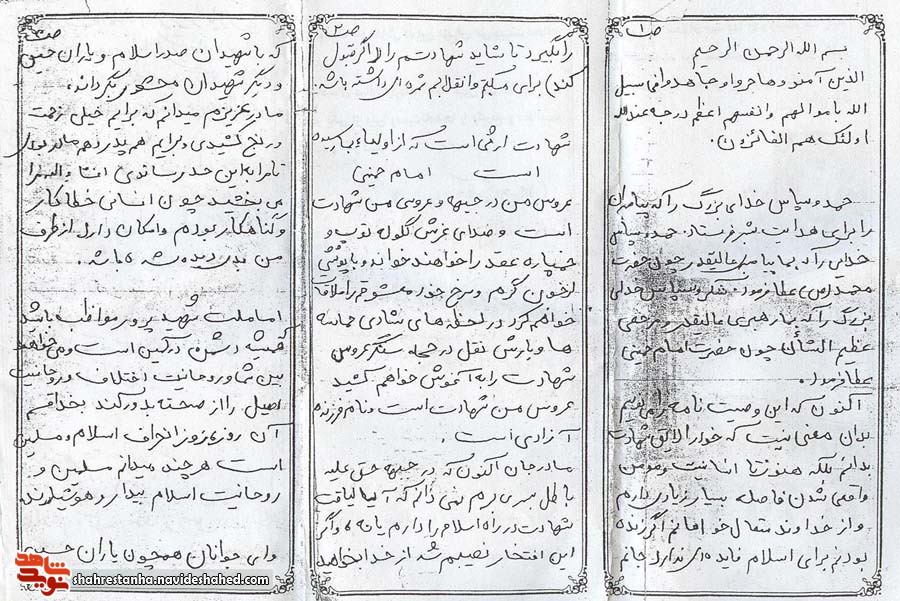 ص ۱
بسم الله الرحمن الرحیم
الذین آمنو و هاجروا و جاهدو فی سبیل
الله باموالهم وانفسهم اعظم درجة عندالله
اولئک هم الفائزون.
حمد و سپاس خدای بزرگ را که پیامبران
را برای هدایت بشر فرستاد. حمد و سپاس
خدایی را که بما پیامبری عالیقدر چون حضرت
محمد(ص) عطا فرمود. شکر و سپاس خدای
بزرگ را که بما رهبری عالیقدر و مرجعی
عظیم الشأن چون حضرت امام خمینی
عطا فرمود.
اکنون که این وصیت نامه را می نویسم
بدان معنی نیست که خود را لایق شهادت
بدانم بلکه هنوز تا انسانیت و مومن
واقعی شدن فاصله بسیار زیادی دارم
و از خداوند متعال می خواهم اگر زنده
بودنم برای اسلام فایده ای ندارد جانم
ص ۲
را بگیرد تا شاید شهادتم را (اگر قبول
کند) برای مکتبم و انقلابم ثمره ای داشته باشد.
شهادت ارثی است که از اولیاء بما رسیده
است امام خمینی
عروس من در جبهه و عروسی من شهادت
است و صدای غرش گلوله توپ و
خمپاره عقد را خواهند خواند و با پوششی
از خون گرم و سرخ خود معشوقم را ملاقات
خواهم کرد در لحظه های شادی خمپاره
ها و بارش نقل در حجله سنگر عروس
شهادت را به آغوش خواهم کشید
عروس من شهادت است و نام فرزندم
آزادی است.
مادر جان اکنون که در جبهه حق علیه
باطل بسر می برم نمی دانم که آیا لیاقت
شهادت در راه اسلام را دارم یا نه، و اگر
این افتخار نصیبم شد از خدا بخواهید
ص ۳
که با شهیدان صدر اسلام و یاران حسین
و دیگر شهیدان محشور بگرداند،
مادر عزیزم میدانم که برایم خیلی زحمت
و رنج کشیدی و برایم هم پدر و هم مادر بودی
تا مرا به این حد رساندی انشاءالله مرا
می بخشید چون انسانی خطاکار
و گناهکار بودم و امکان دارد از طرف
من بدی دیده شده باشد.
اما ملت شهید پرور مواظب باشید
همیشه دشمن در کمین است و می خواهد
بین شما و روحانیت اختلاف و روحانیت
اصیل را از صحنه بدور کند بخدا قسم
آن روز، روز انحراف اسلام و مسلمین
است هر چند میدانم مسلمین و
روحانیت اسلام بیدار و هوشیارند
و ای جوانان همچون یاران حسین
شاهد
نوید
shahrestanha.navideshahed.com